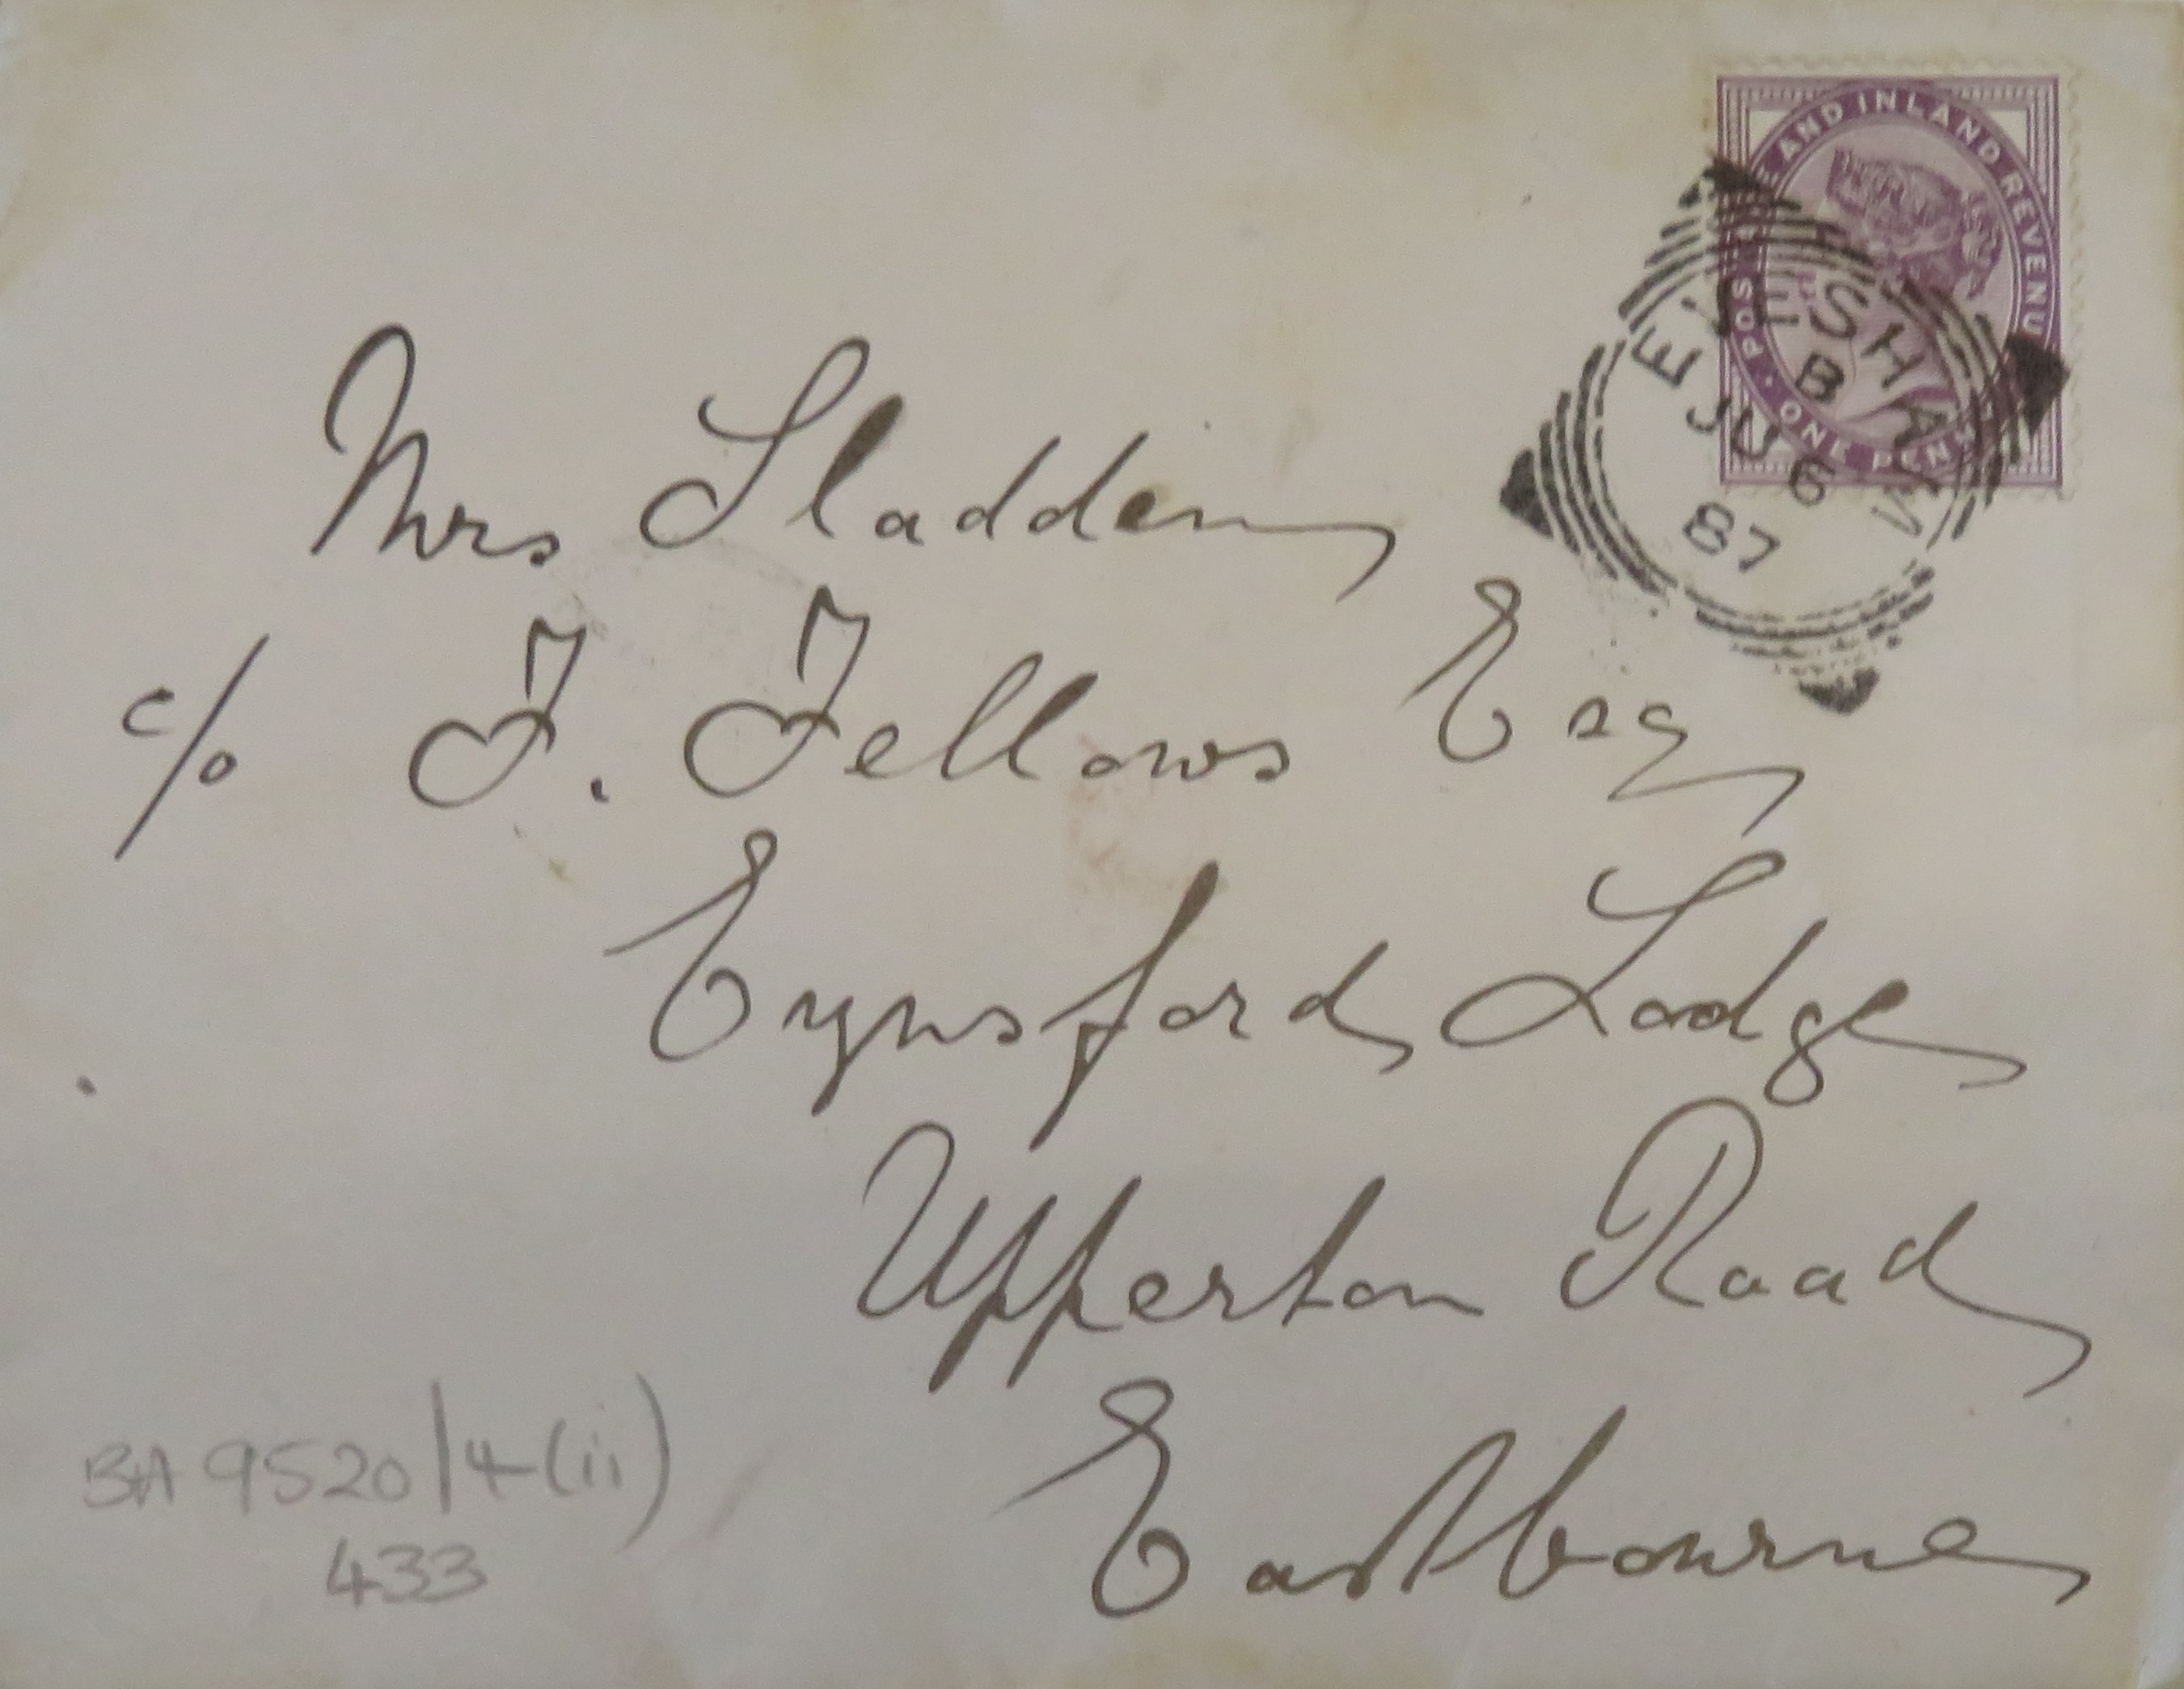 POSTAGE AND INLAND REVENUE
ONE PENNY
EVESHAM
B
JU 6
87
Mrs Sladden
c/o F. Fellows Esq
Eynsford Lodge
Upperton Road
Eastbourne
BA 9520/4(ii)
433